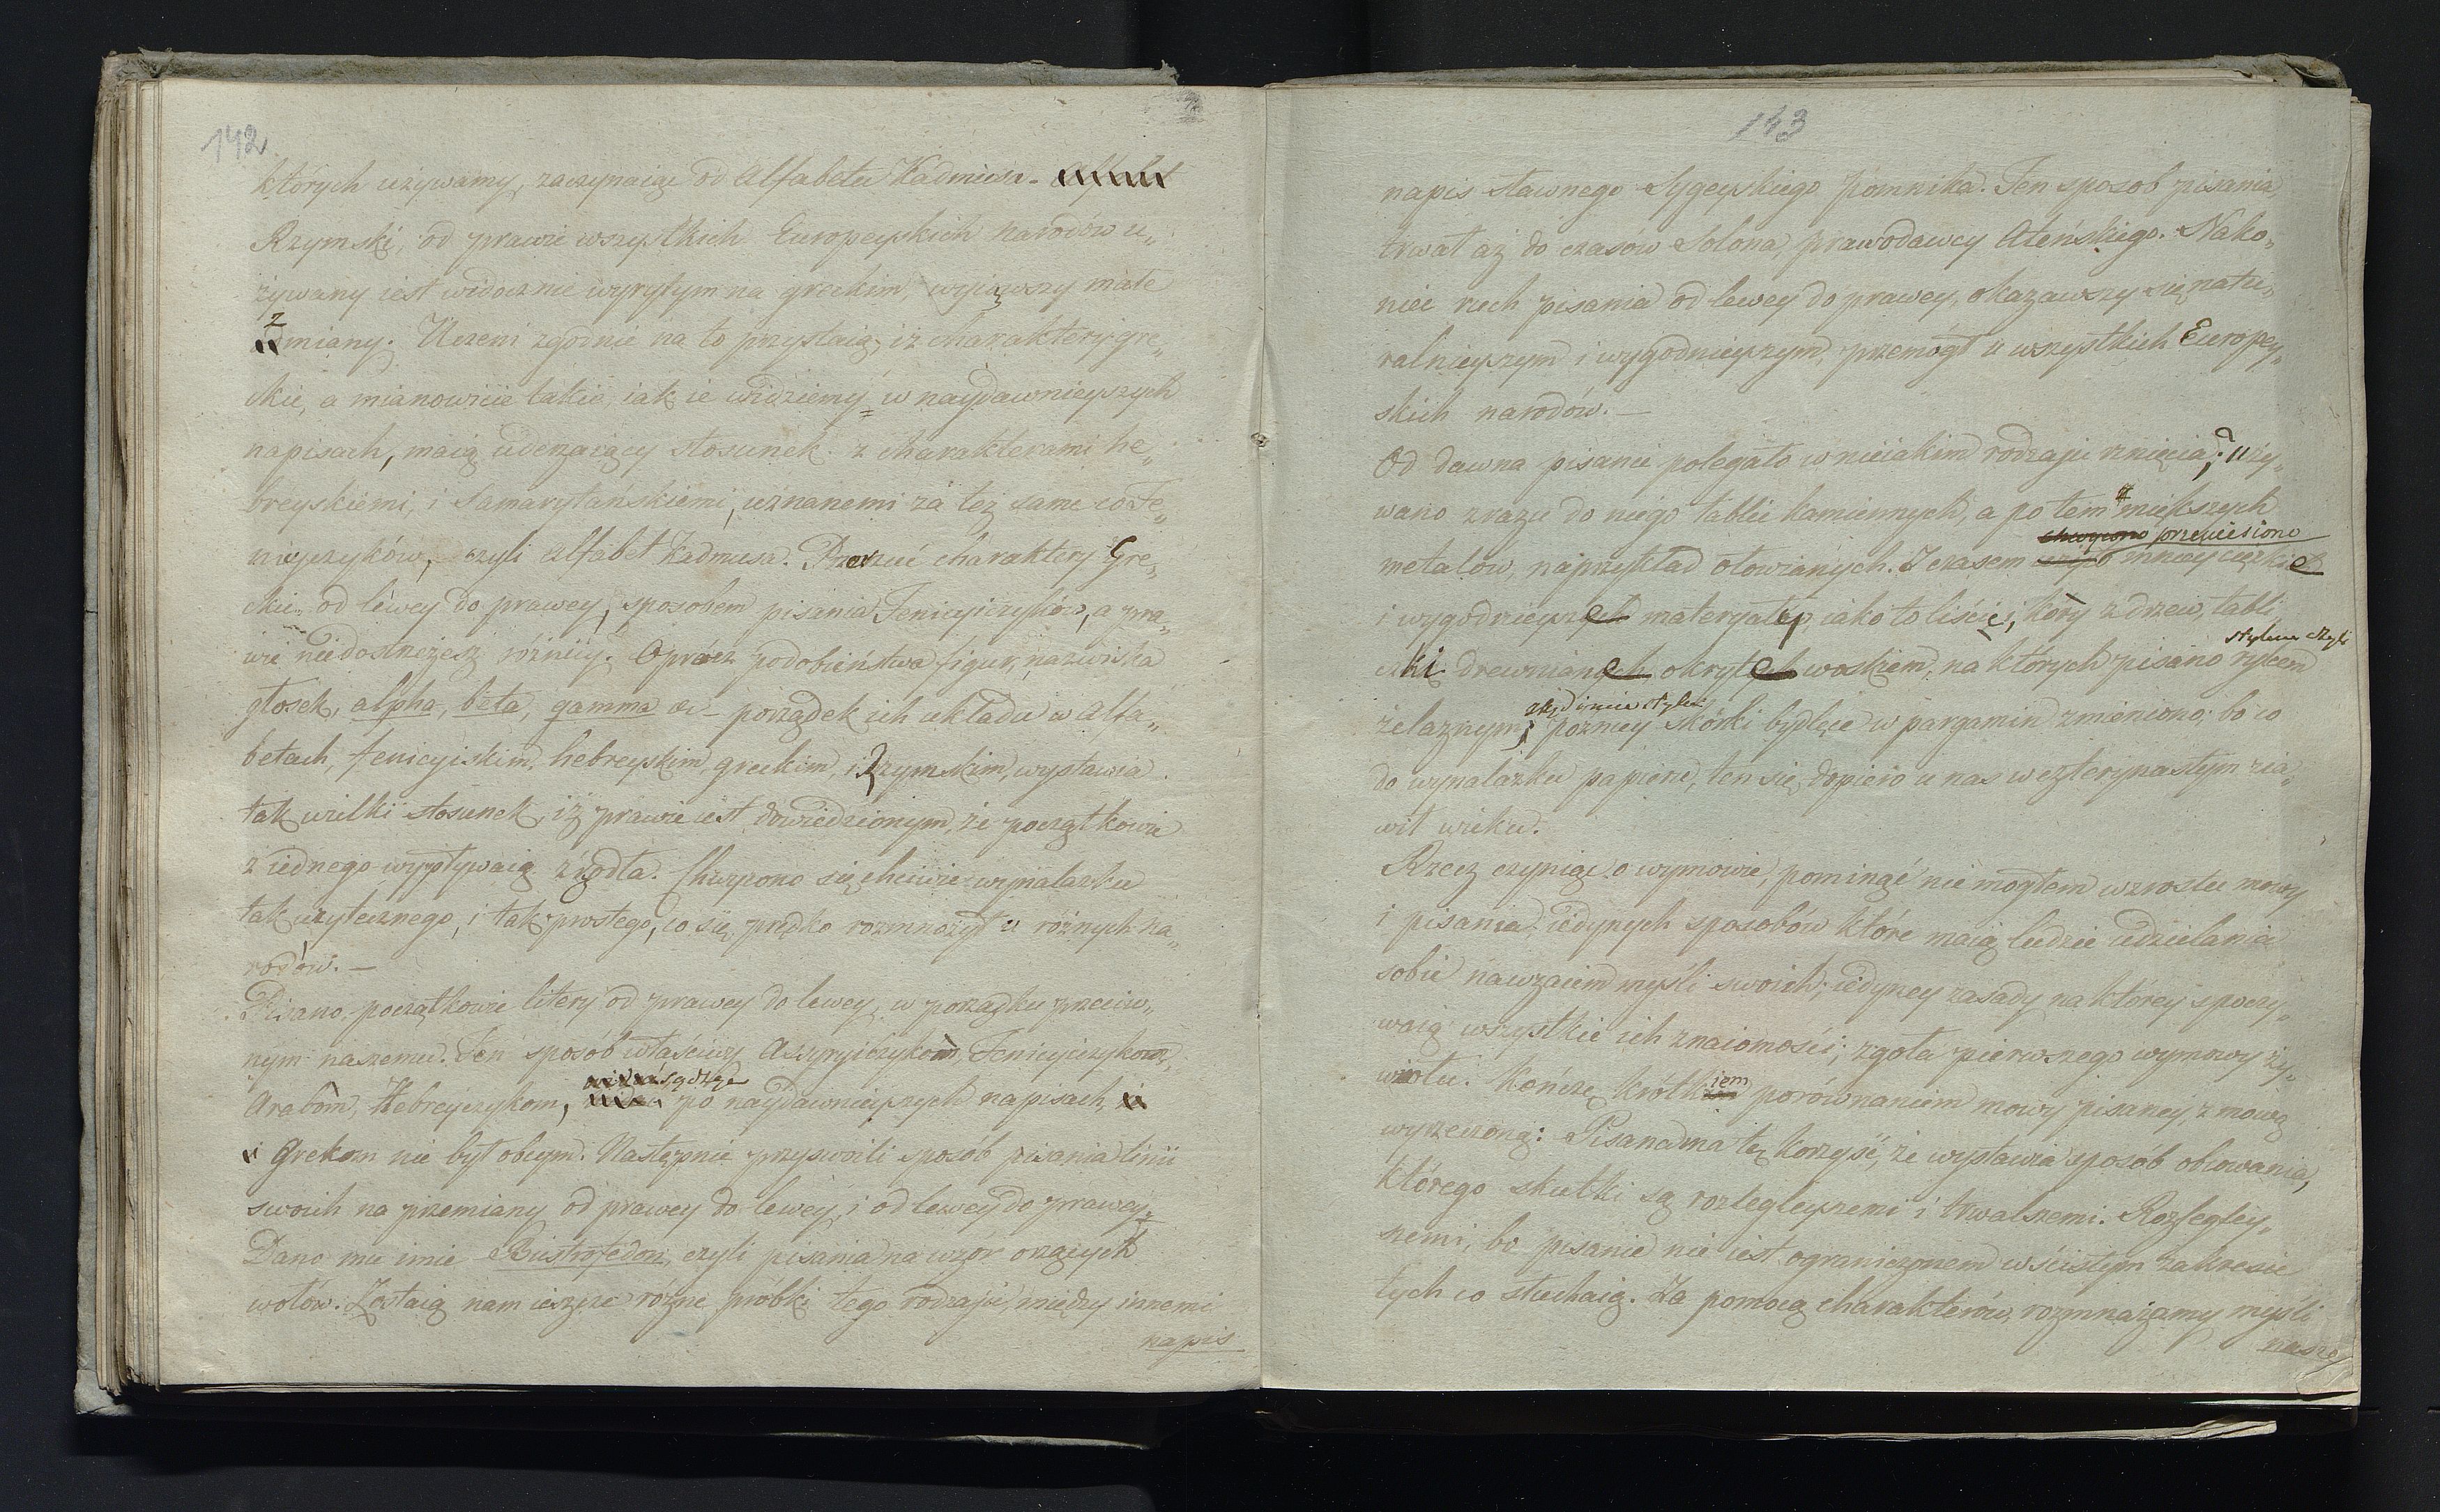 142
których używamy, zaczynaiąc od Alfabetu Kadmusa.
Rzymski, od prawie wszystkich Europeyskich narodów u„
żywany iest widocznie wyrytym na greckim, wyiąwszy małe
zmiany. Uczeni zgodnie na to przystaią, iż charaktery gre„
ckie, a mianowicie takie, iak ie widziemy w naydawnieyszych
napisach, maią uderzaiący stosunek z charakterami he„
breyskiemi, i Samarytańskiemi, uznanemi za też same co Fe„
nicyczyków, czyli alfabet Kadmusa. Przerzuć charaktery Gre„
ckie od lewey do prawey, sposobem pisania Fenicyiczyków, a pra„
wie niedostrzeżesz różnicy. Oprócz podobieństwa figur, nazwiska
głosek, alpha, beta, gamma &c – porządek ich układu w alfa„
betach, fenicyiskim, hebreyskim, greckim, i Rzymskim, wystawia
tak wielki stosunek, iż prawie iest dowiedzionym, że początkowie
z iednego wypływaią źrzodła. Chwycono się chciwie wynalazku
tak użytecznego, i tak prostego, co się prędko rozmnożył u różnych na„
rodów. —
Pisano początkowie litery od prawey do lewey, w porządku przeciw„
nym naszemu. Ten sposób właściwy Assyryiczykom, Fenicyiczykom,
sądząc
Arabom, Hebreyczykom, po naydawnieyszych napisach,
i Grekom nie był obcym. Następnie przyswoili sposób pisania linii
swoich na przemiany od prawey do lewey, i od lewey do prawey.
Dano mu imie Bustrofedon, czyli pisania na wzór orzących
wołów. Zostaią nam ieszcze różne próbki tego rodzaju, między innemi
napis
143
napis sławnego Sygeyskiego pomnika. Ten sposób pisania,
trwał aż do czasów Solona, prawodawcy Ateńskiego. Nako„
niec ruch pisania od lewey do prawey, okazawszy się natu„
ralnieyszym i wygodnieyszym, przemógł u wszystkich Europey„
skich narodów. —
Od dawna pisanie polegało w nieiakim rodzaju rznięcia; uży„
wano zrazu do niego tablic kamiennych, a po tem miększych
chwycono przeniesiono
metalów, naprzykład ołowianych. Z czasem mniey ciężkie
i wygodnieysze materyały, iako to liście, kory z drzew, tabli
stylem czyli
czki drewniane okryte woskiem, na których pisano rylcem
zkąd imie stylu
żelaznym; pozniey skórki bydlęce w pargamin zmieniono; bo co
do wynalazku papieru, ten się dopiero u nas w czterynastym zia„
wił wieku.
Rzecz czyniąc o wymowie, pominąć nie mogłem wzrostu mowy
i pisania iedynych sposobów które maią ludzie udzielania
sobie nawzaiem myśli swoich; iedyney zasady na którey spoczy„
waią wszystkie ich znaiomości; zgoła pierwszego wymowy ży„
wiołu. Kończę krótkiem porównaniem mowy pisaney, z mową
wyrzeczoną: Pisana ma tę korzyść, że wystawia sposób obcowania,
którego skutki są rozlegleyszemi i trwalszemi. Rozlegley„
szemi, bo pisanie nie iest ograniczonem w ścisłym zakresie
tych co słuchaią. Za pomocą charakterów, rozmnażamy myśli
nasze